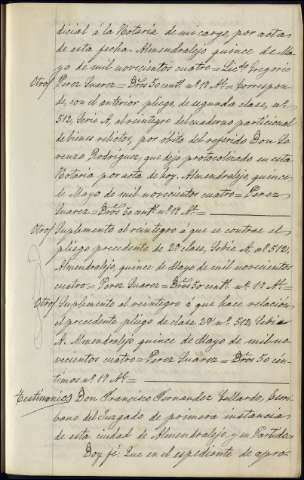 dicial á la Notaria de mi cargo por nota
de esta fecha. Almendralejo quince de Ma
yo de mil novecientos cuatro = Licdo. Gregorio
Otrosí Perez Suarez = Dros 50 cents. nº 19. Aº = Correspon
de, con el anterior pliego, de segunda clase, nº.
512, Serie A, al reintegro del cuaderno particional
de bienes relictos, por óbito del referido Don Lo
renzo Rodriguez, que dejo protocolizado en esta
Notaria por nota de hoy. Almendralejo, quince
de Mayo de mil novecientos cuatro = Perez
Suarez = Dros 50 cents. nº 19. Aº =
Otrosí Suplemento al reintegro á que se contrae el
pliego precedente de 2ª clase, Serie A. nº. 512.
Almendralejo quince de Mayo de mil novecientos
cuatro = Perez Suarez = Dros 50 cents. nº. 19. Aº =
Otrosí Suplemento al reintegro á que hace relacion
el precedente pliego de clase 2ª nº. 512, Serie
A. Almendralejo quince de Mayo de mil no
vecientos cuatro = Perez Suarez = Dros 50 cén
timos nº. 19. Aº =
Testimonio = Don Francisco Fernandez Gallardo, Escri
bano del Juzgado de primera instancia
de esta ciudad de Almendralejo, y su Partido =
Doy fé: Que en el espediente de apro-